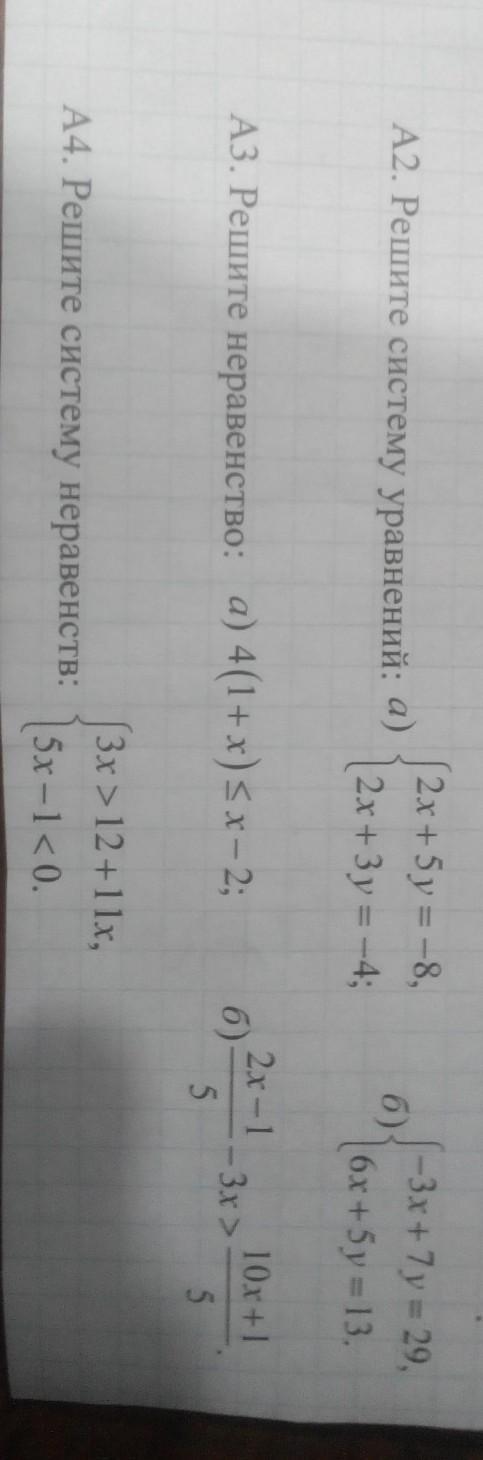 А2. Решите систему уравнений: а) { 2x + 5y = −8,
2x + 3y = −4;
б) { −3x + 7y = 29,
6x + 5y = 13.
А3. Решите неравенство: а) 4(1 + x) ≤ x − 2; б) (2x − 1)/5 − 3x > (10x + 1)/5.
А4. Решите систему неравенств: { 3x > 12 + 11x,
5x − 1 < 0.